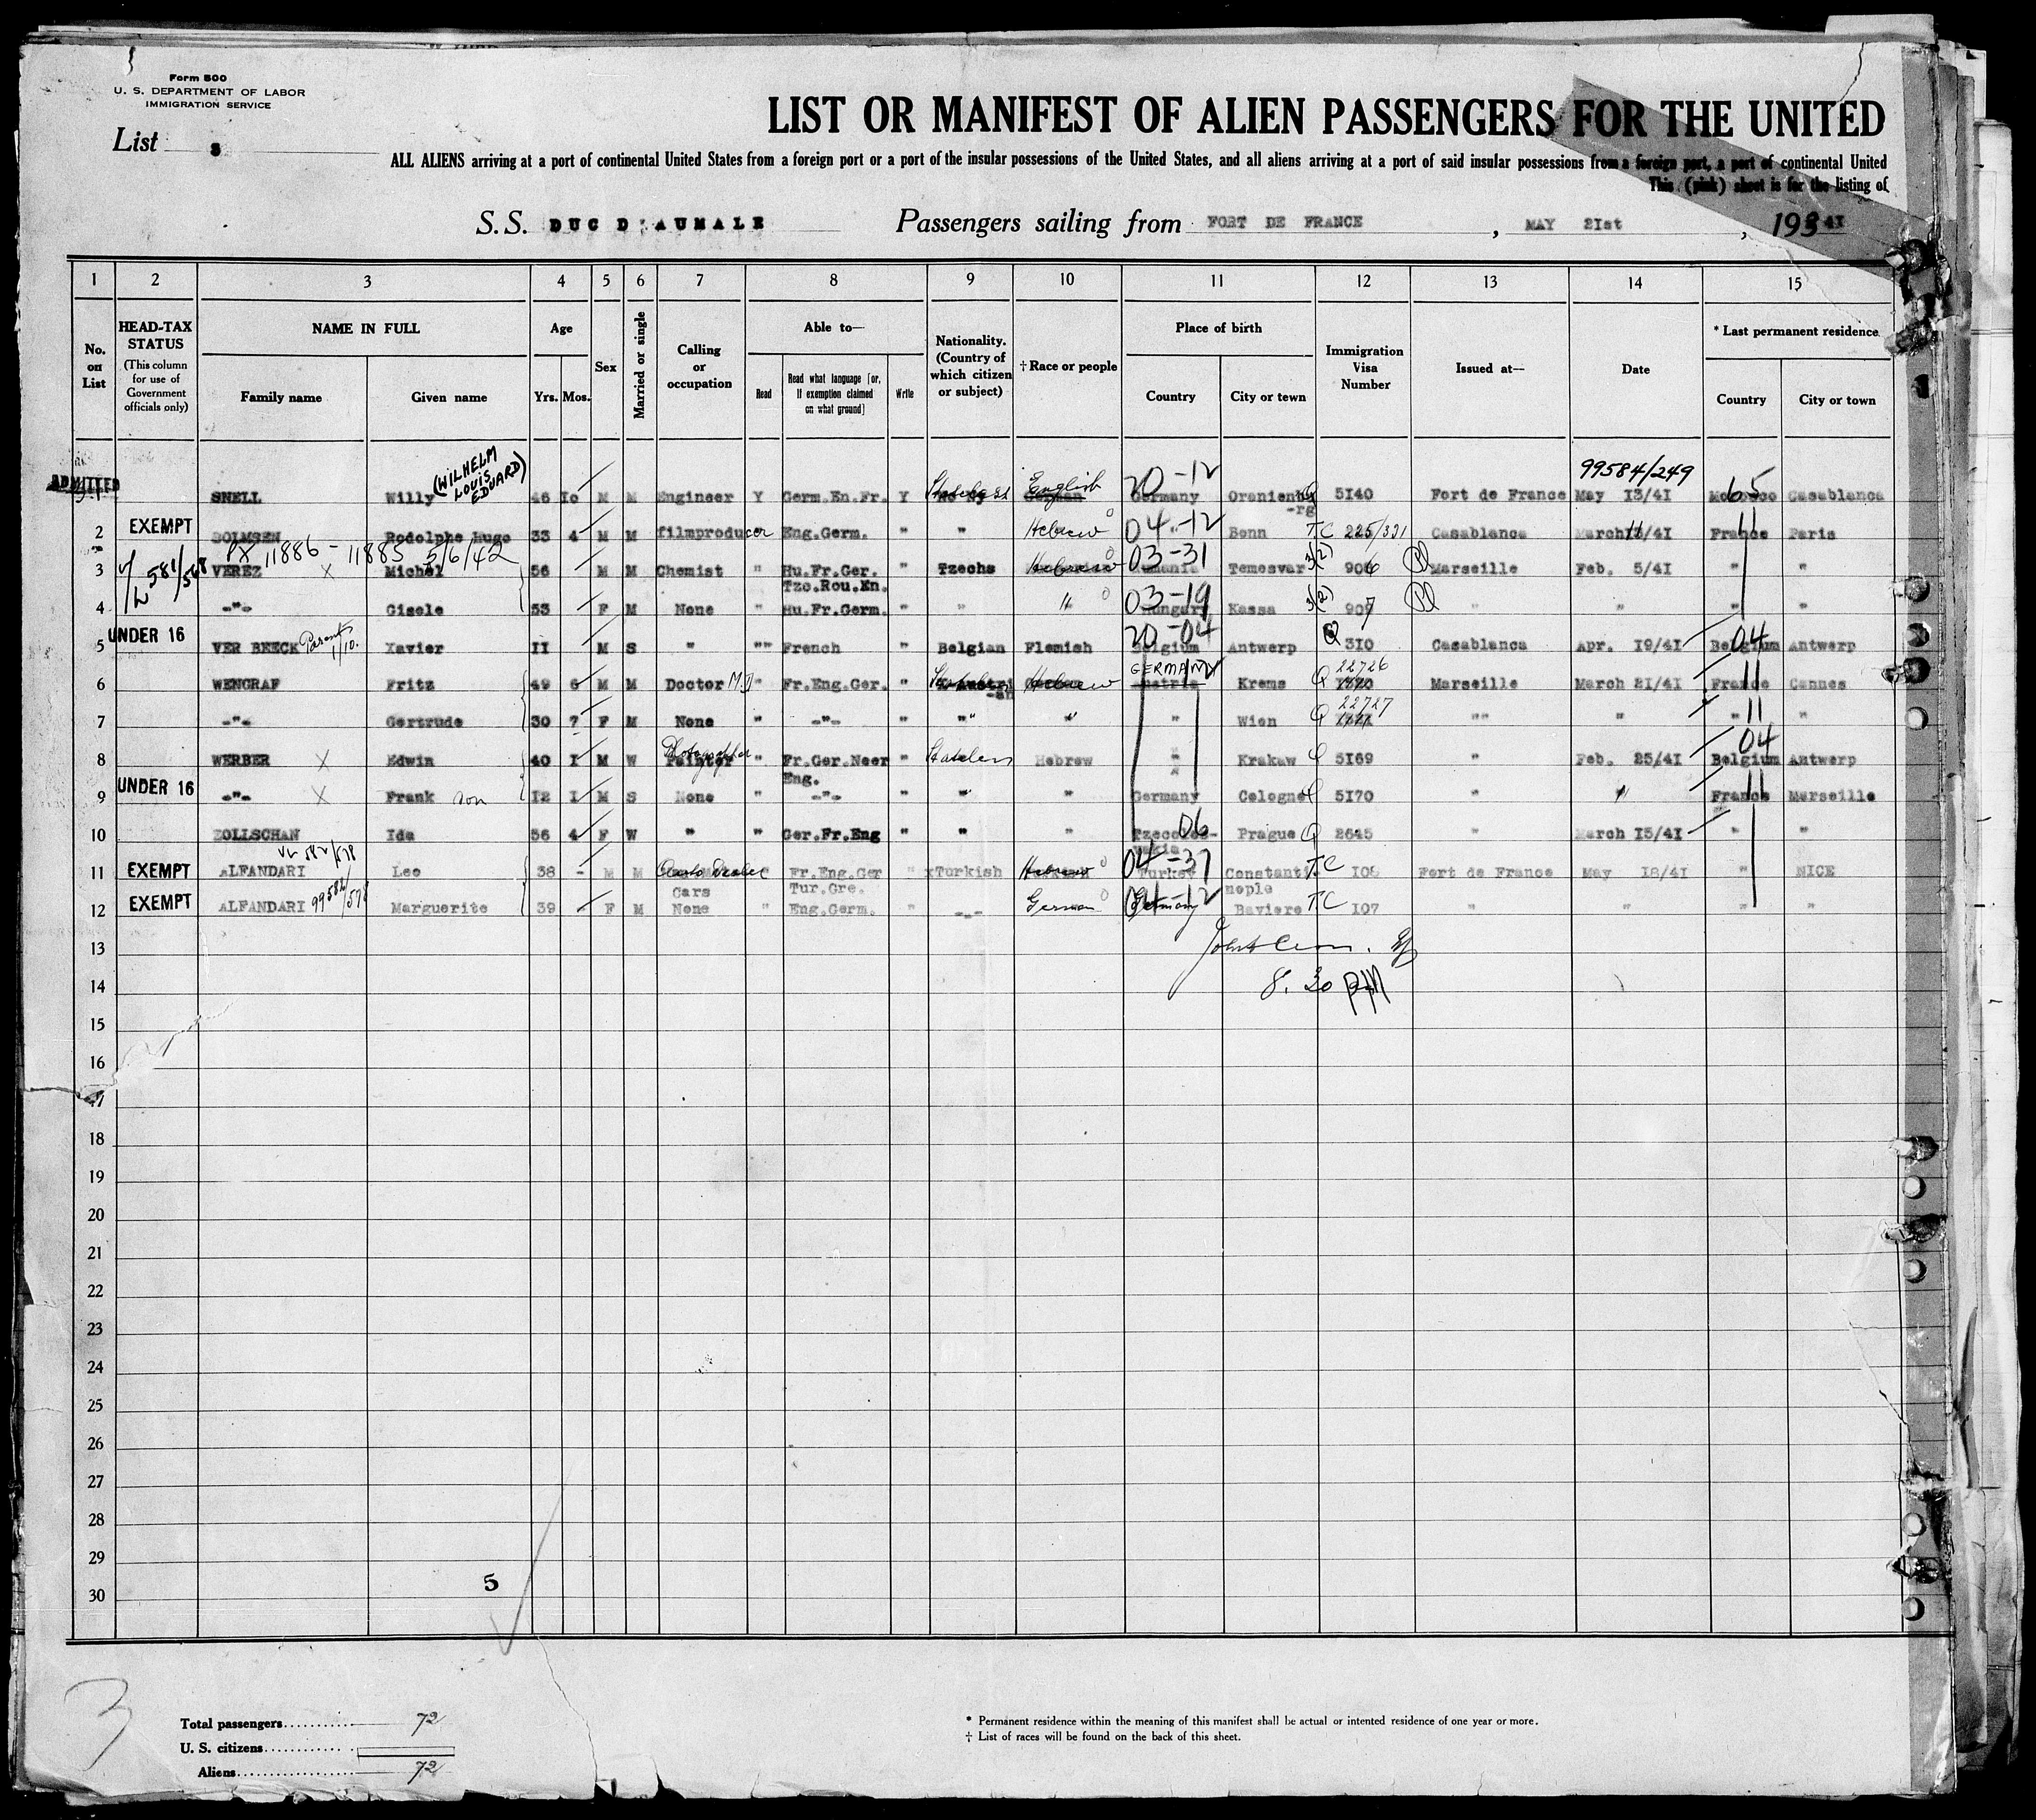 Form 500
U. S. DEPARTMENT OF LABOR
IMMIGRATION SERVICE
List 3
LIST OR MANIFEST OF ALIEN PASSENGERS FOR THE UNITED
ALL ALIENS arriving at a port of continental United States from a foreign port or a port of the insular possessions of the United States, and all aliens arriving at a port of said insular possessions from a foreign port, a port of continental United
This (pink) sheet is for the listing of
S. S. DUC D'AUMALE Passengers sailing from FORT DE FRANCE, MAY 21st, 19341
1 2 3 4 5 6 7 8 9 10 11 12 13 14 15
No. on List
HEAD-TAX STATUS
(This column for use of Government officials only)
NAME IN FULL
Family name Given name
Age
Yrs. Mos.
Sex
Married or single
Calling or occupation
Able to—
Read
Read what language [or, if exemption claimed on what ground]
Write
Nationality. (Country of which citizen or subject)
† Race or people
Place of birth
Country City or town
Immigration Visa Number
Issued at—
Date
* Last permanent residence
Country City or town
99584/249
ADMITTED SNELL Willy (WILHELM LOUIS EDUARD) 46 10 M M Engineer Y Germ.En.Fr. Y Stateless English German 20-12 Germany Oranienb-rg Q 5140 Fort de France May 13/41 65 Morocco Casablanca
2 EXEMPT DOLMSEN Rodolphe Hugo 33 4 M M filmproducer " Eng.Germ. " " Hebrew 04-12 Bonn TC 225/331 Casablanca March 1 /41 France Paris
PX 11886 - 11885 5/6/42
3 581/568 VEREZ X Michel 56 M M Chemist " Hu.Fr.Ger. Tzc.Rou.En. " Tzechs Hebrew 03-31 Rumania Temesvar 3(2) 906 Marseille Feb. 5/41 " "
4 -"- Gisele 53 F M None " Hu.Fr.Germ. " " " 03-19 Hungary Kassa 3(2) 907 " " " "
5 UNDER 16 VER BEECK Parents 1/10. Xavier 11 M S " "" French Belgian Flemish 20-04 Belgium Antwerp Q 310 Casablanca Apr. 19/41 04 Belgium Antwerp
6 WENGRAF Fritz 49 6 M M Doctor MD " Fr.Eng.Ger. " Hebrew GERMANY Austria Krems Q 22726 Marseille March 21/41 11 France Cannes
7 -"- Gertrude 30 7 F M None " -"- " "" " " Wien Q 22727 "" " " 11 "
8 WERBER X Edwin 40 1 M W Photographer Painter " Fr.Ger.Neer Eng. " Stateless Hebrew " Krakaw Q 5169 " Feb. 25/41 04 Belgium Antwerp
9 UNDER 16 -"- X Frank son 12 1 M S None " -"- " " " Germany Cologne Q 5170 " " 11 France Marseille
10 ZOLLSCHAN Ida 56 4 F W " " Ger.Fr.Eng " " " 06 Tzecoslo-vakia Prague Q 2645 " March 15/41 " "
11 EXEMPT ALFANDARI 582/578 Leo 38 - M M Auto Dealer Cars " Fr.Eng.Ger Tur.Gre. " xTurkish Hebrew 04-37 Turkey Constantinople TC 108 Fort de France May 18/41 " NICE
12 EXEMPT ALFANDARI 99582/578 Marguerite 39 - F M None " Eng.Germ. " -"- German 04-12 Germany Baviere TC 107 " " " "
13
14 8.30 PM
15
16
17
18
19
20
21
22
23
24
25
26
27
28
29
30
5
3
Total passengers 72
U. S. citizens
Aliens 72
* Permanent residence within the meaning of this manifest shall be actual or intented residence of one year or more.
† List of races will be found on the back of this sheet.